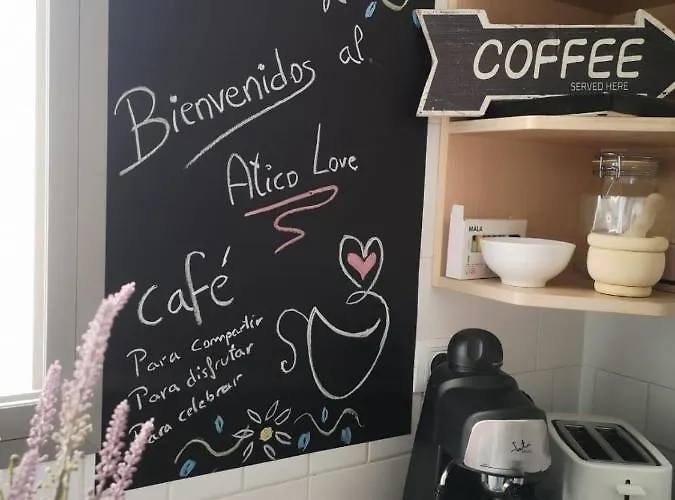 Bienvenidos al
Atico Love
Café
Para compartir
Para disfrutar
Para celebrar
COFFEE
SERVED HERE
MÅLA
Jata